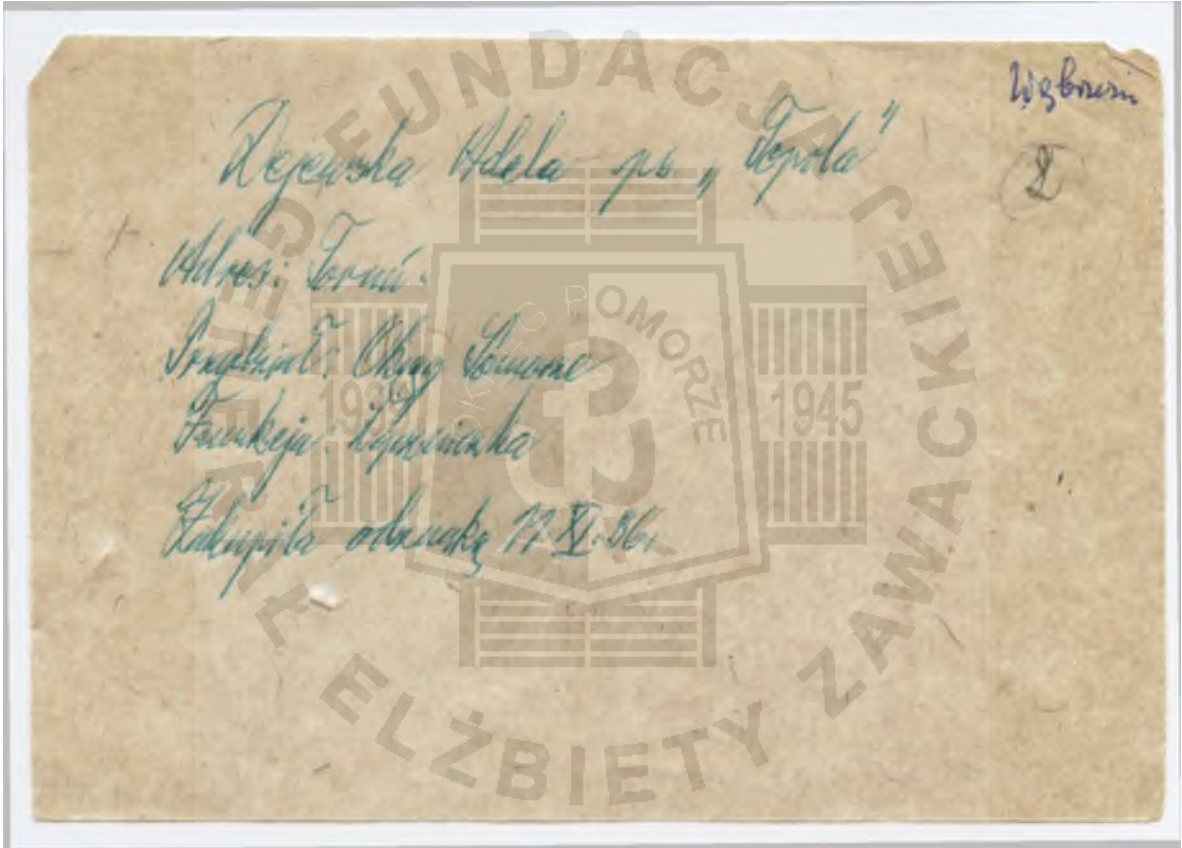 Wąbrzeźn
Adela ps. „Topola"
Adres: Toruń.
Przydział: Okręg Pomorze
Funkcja: Łączniczka
Zakupiła odznakę 17.XI.86r.
FUNDACJA GENERAŁ ELŻBIETY ZAWACKIEJ
OKRĘG POMORZE
1939 1945